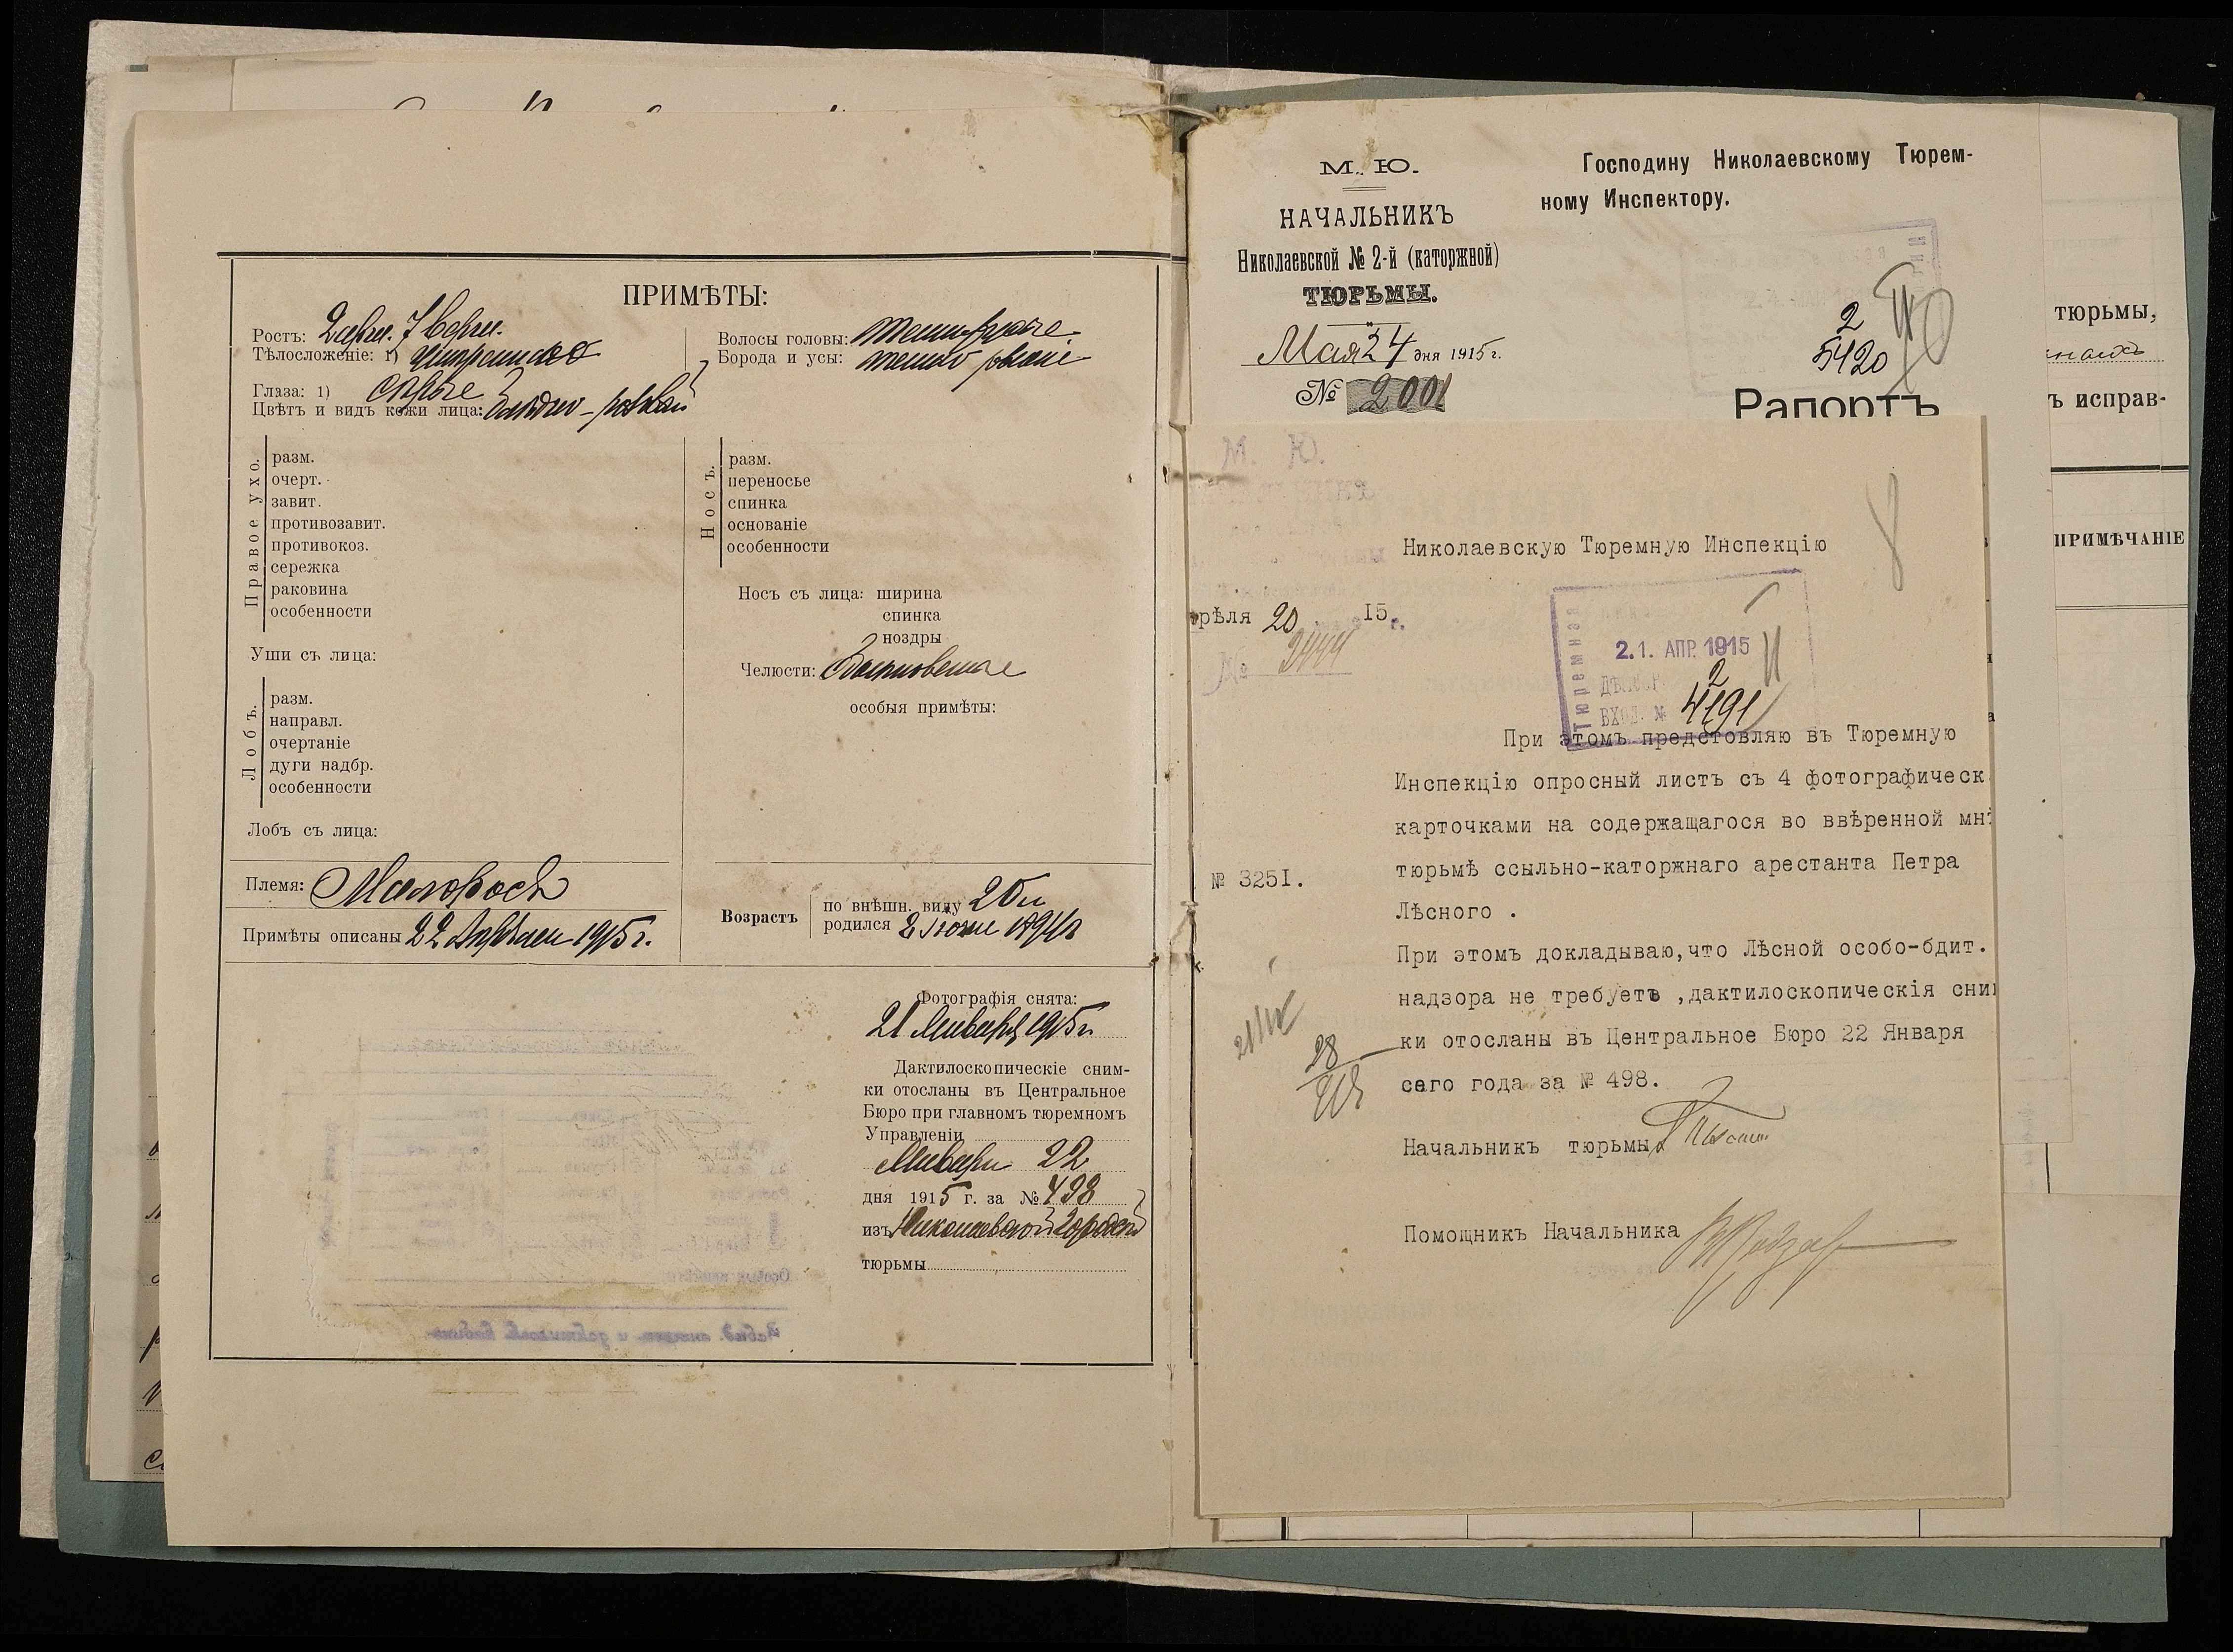 ПРИМѢТЫ:
Ростъ: 2 арш. 7 верш.
Тѣлосложеніе: 1)
Глаза: 1) карые
Цвѣтъ и видъ кожи лица:
Волосы головы: темно-русые
Борода и усы: темно русые
Правое ухо.
разм.
очерт.
завит.
противозавит.
противокоз.
сережка
раковина
особенности
Уши съ лица:
Лобъ.
разм.
направл.
очертаніе
дуги надбр.
особенности
Лобъ съ лица:
Носъ.
разм.
переносье
спинка
основаніе
особенности
Носъ съ лица: ширина
спинка
ноздри
Челюсти:
особыя примѣты:
Племя: Малороссъ
Примѣты описаны 22 Апрѣля 1915 г.
Возрастъ
по внѣшн. виду 20 л
родился 2 Іюня 1894 г
Фотографія снята:
21 Января 1915 г.
Дактилоскопическіе сним-
ки отосланы въ Центральное
Бюро при главномъ тюремномъ
Управленіи
Января 22
дня 1915 г. за № 498
изъ Николаевской Городской
тюрьмы
М. Ю.
НАЧАЛЬНИКЪ
Николаевской № 2-й (каторжной)
ТЮРЬМЫ.
Мая 24 дня 1915 г.
№ 2001
Господину Николаевскому Тюрем-
ному Инспектору.
2
5420
Рапортъ
тюрьмы,
ъ исправ-
ПРИМѢЧАНІЕ
М. Ю.
8
Николаевскую Тюремную Инспекцію
рѣля 20 15 г.
№ 2444
Тюремная
21. АПР. 1915
2
ВХОД. № 4191
При этомъ предстовляю въ Тюремную
Инспекцію опросный листъ съ 4 фотографическ
карточками на содержащагося во ввѣренной мнѣ
№ 3251.
тюрьмѣ ссыльно-каторжнаго арестанта Петра
Лѣсного .
При этомъ докладываю,что Лѣсной особо-бдит.
надзора не требуетъ ,дактилоскопическія сним
ки отосланы въ Центральное Бюро 22 Января
сего года за № 498.
Начальникъ тюрьмы
Помощникъ Начальника